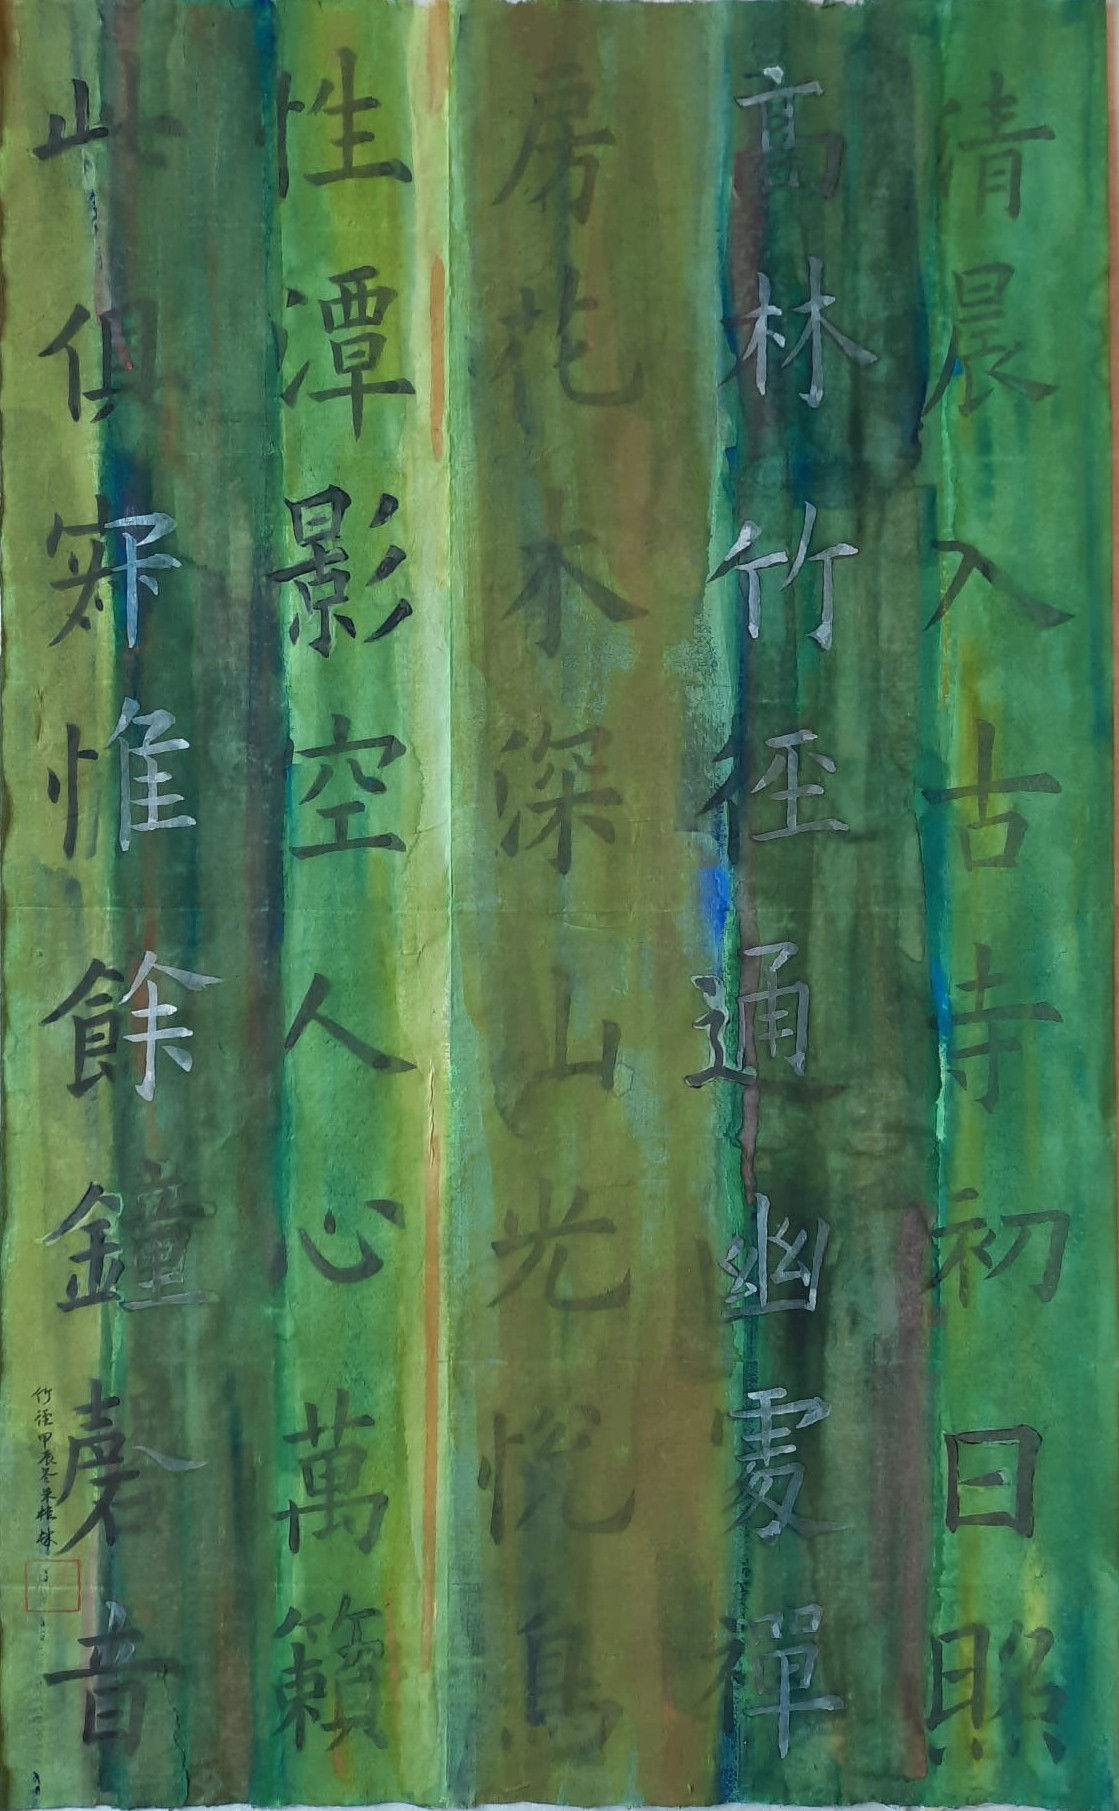 清晨入古寺初日照
高林竹徑通幽處禪
房花木深山光悅鳥
性潭影空人心萬籟
此俱寂惟餘鐘磬音
竹徑甲辰冬朱桂林